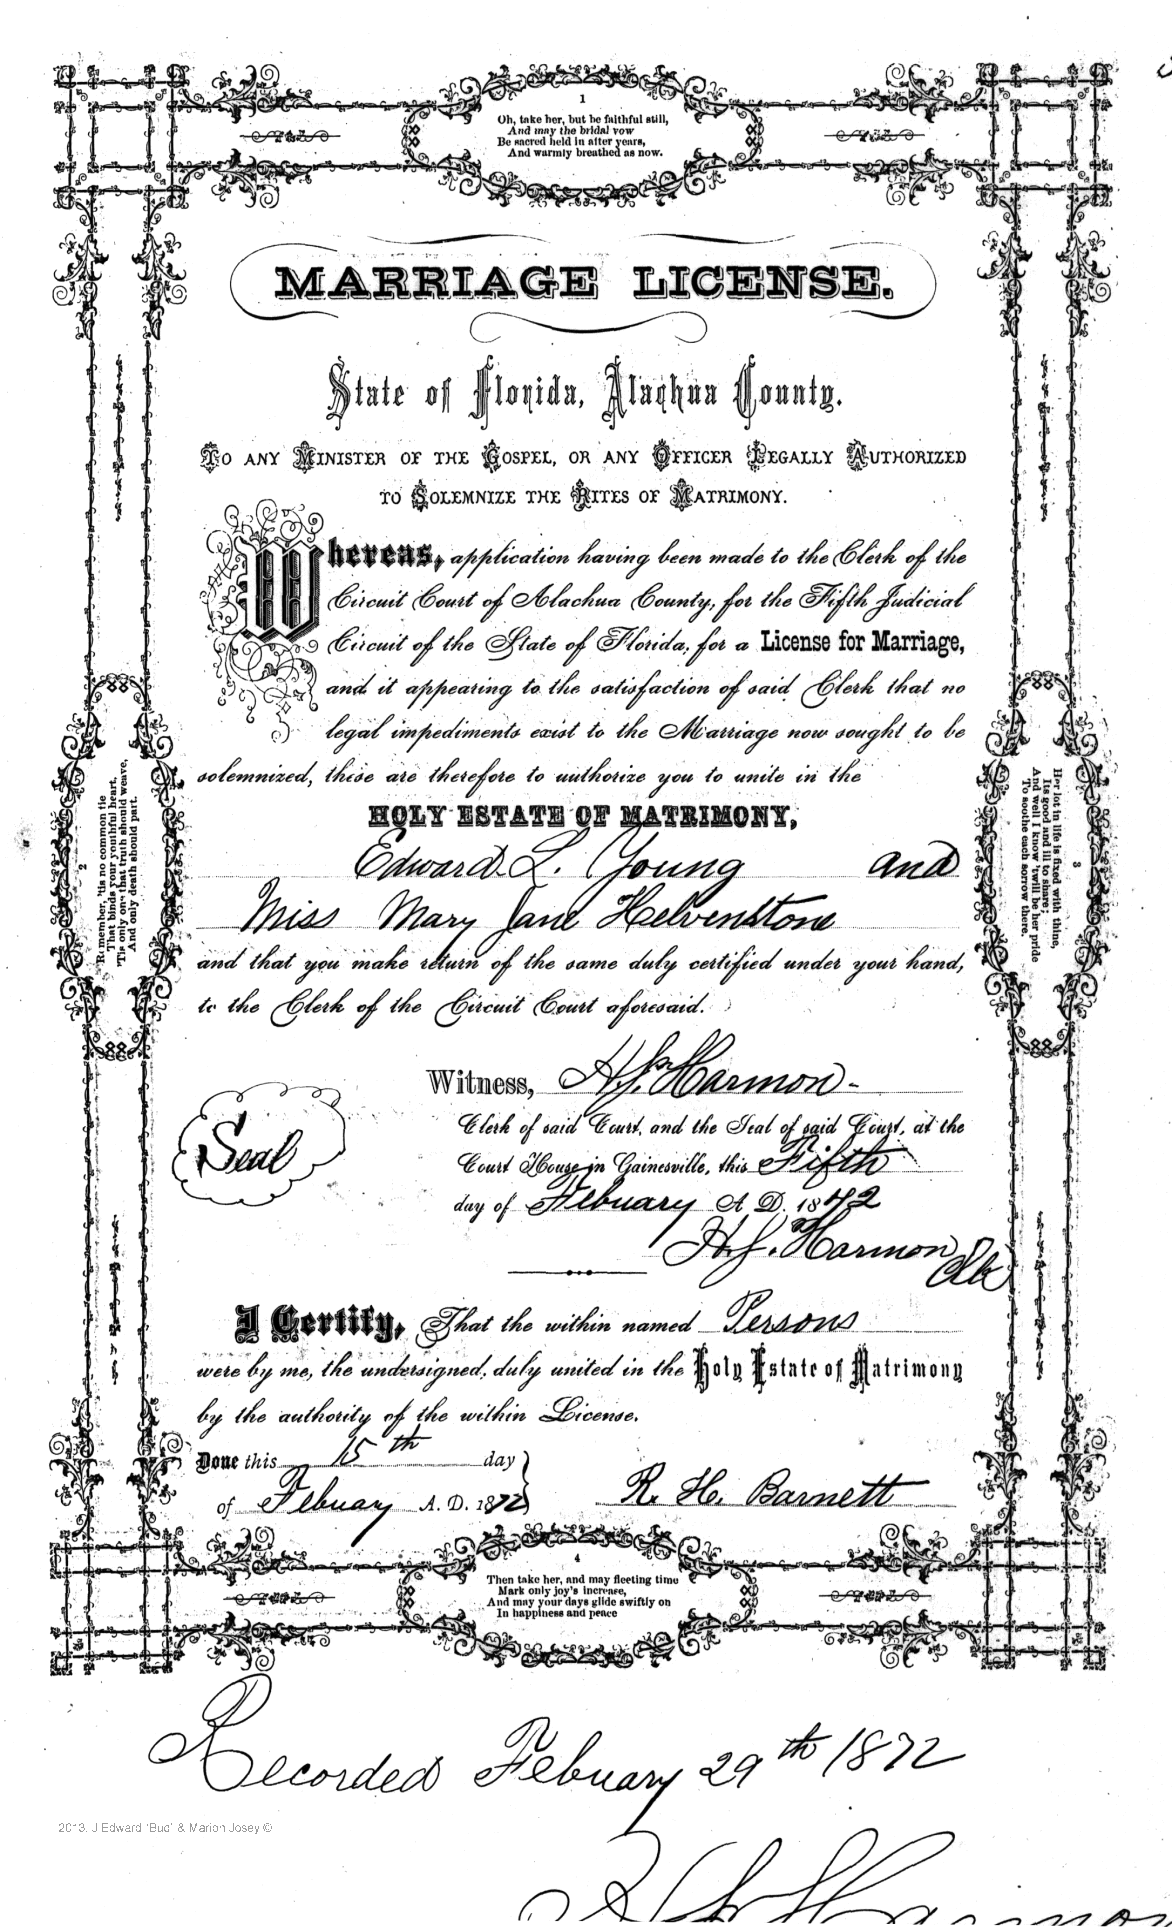 1
Oh, take her, but be faithful still,
And may the bridal vow
Be sacred held in after years,
And warmly breathed as now.
MARRIAGE LICENSE.
State of Florida, Alachua County.
TO ANY MINISTER OF THE GOSPEL, OR ANY OFFICER LEGALLY AUTHORIZED
TO SOLEMNIZE THE RITES OF MATRIMONY.
Whereas, application having been made to the Clerk of the
Circuit Court of Alachua County, for the Fifth Judicial
Circuit of the State of Florida, for a License for Marriage,
and it appearing to the satisfaction of said Clerk that no
legal impediments exist to the Marriage now sought to be
solemnized, these are therefore to authorize you to unite in the
HOLY ESTATE OF MATRIMONY,
Edward L. Young and
Miss Mary Jane Helvenstone
and that you make return of the same duly certified under your hand,
to the Clerk of the Circuit Court aforesaid.
2
Remember, 'tis no common tie
That binds your youthful heart,
'Tis only one that truth should weave,
And only death should part.
3
Her lot in life is fixed with thine,
Its good and ill to share;
And well I know 'twill be her pride
To soothe each sorrow there.
Seal
Witness, H.J. Harmon -
Clerk of said Court, and the Seal of said Court, at the
Court House in Gainesville, this Fifth
day of Febuary A D. 1872
H.J. Harmon
Clk
I Certify, That the within named Persons
were by me, the undersigned, duly united in the Holy Estate of Matrimony
by the authority of the within License.
Done this 15th day
of Febuary A. D. 1872 R. H. Barnett
4
Then take her, and may fleeting time
Mark only joy's increase,
And may your days glide swiftly on
In happiness and peace
Recorded Febuary 29th 1872
2013. J Edward 'Bud' & Marion Josey ©
H J Harmon